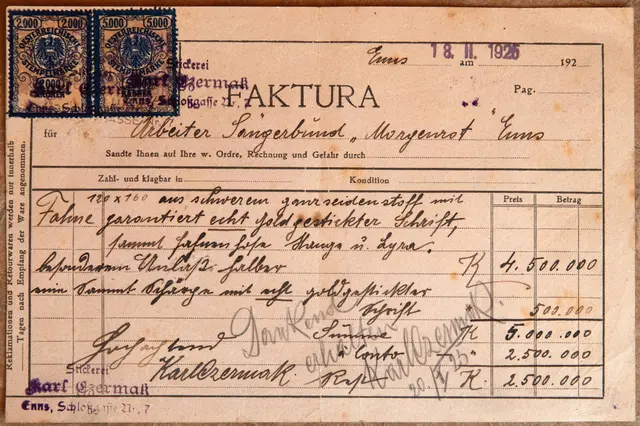 2.000 2.000
ÖSTERREICHISCHE
STEMPELMARKE
5.000 5.000
ÖSTERREICHISCHE
STEMPELMARKE
Stickerei
Karl Czermak
Enns, Schloßgasse 27, 7
Enns am 18. II. 1925 192
Pag.
FAKTURA
für Arbeiter Sängerbund „Morgenrot" Enns
Sandte Ihnen auf Ihre w. Ordre, Rechnung und Gefahr durch
Zahl- und klagbar in Kondition
Preis Betrag
120 x 160 aus schwerem ganzseidenstoff mit
Fahne garantiert echt goldgestickter Schrift,
sammt fahnenhose Stange u. Lyra.
besonderem Anlaß halber K 4.500.000
eine Sammt Schärpe mit echt goldgestickter
Schrift " 500.000
Summe K 5.000.000
à Conto " 2.500.000
Rest K. 2.500.000
Hochachtend
Karl Czermak.
Dankend
erhalten
Karl Czermak.
Stickerei
Karl Czermak
Enns, Schloßgasse 27, 7
Reklamationen und Retourwaren werden nur innerhalb
Tagen nach Empfang der Ware angenommen.